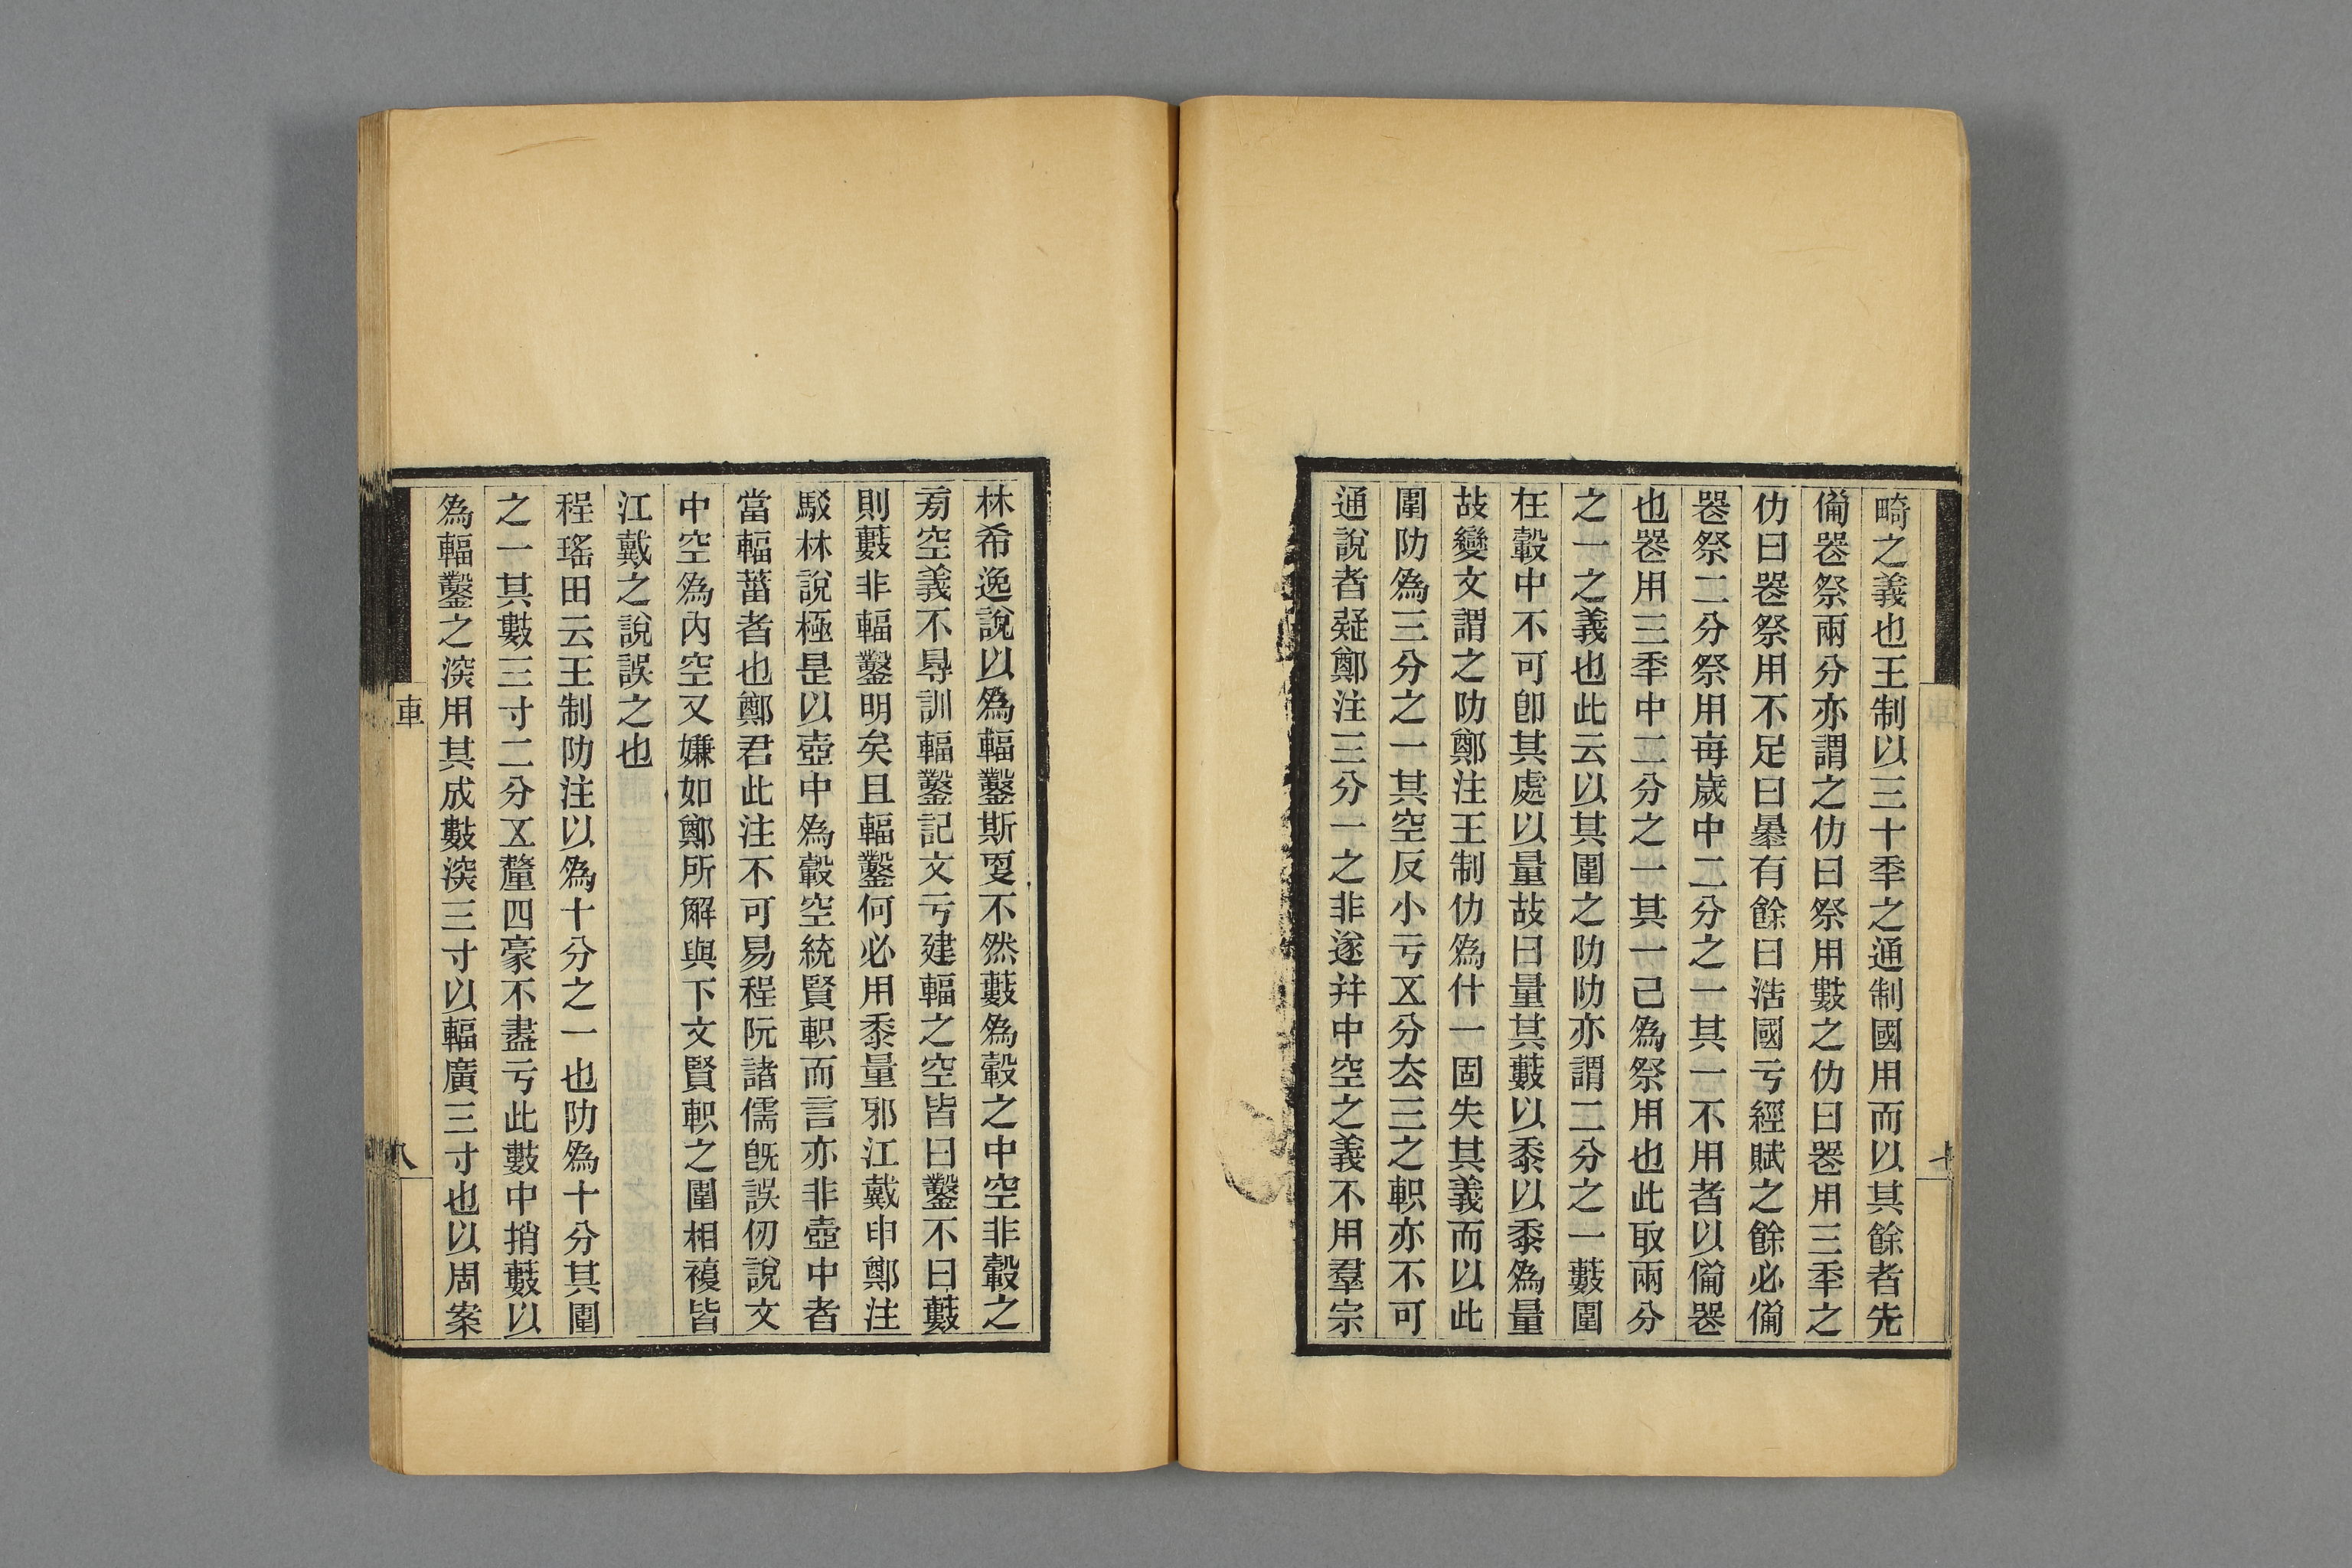 畸之義也王制以三十秊之通制國用而以其餘者先
僃器祭兩分亦謂之仂曰祭用數之仂曰器用三秊之
仂曰器祭用不足曰㬥有餘曰浩國亏經賦之餘必僃
器祭二分祭用每歲中二分之一其一不用者以僃器
也器用三秊中二分之一其一已為祭用也此取兩分
之一之義也此云以其圍之阞阞亦謂二分之一藪圍
在轂中不可卽其處以量故曰量其藪以黍以黍為量
故變文謂之阞鄭注王制仂為什一固失其義而以此
圍阞為三分之一其空反小亏㐅分去三之軹亦不可
通說者疑鄭注三分一之非遂幷中空之義不用羣宗
林希逸說以為輻鑿斯㪅不然藪為轂之中空非轂之
㫄空義不㝵訓輻鑿記文亏建輻之空皆曰鑿不曰藪
則藪非輻鑿明矣且輻鑿何必用黍量邪江戴申鄭注
駁林說極是以壺中為轂空統賢軹而言亦非壺中者
當輻葘者也鄭君此注不可易程阮諸儒旣誤仞說文
中空為內空又嫌如鄭所解與下文賢軹之圍相複皆
江戴之說誤之也
程瑤田云王制阞注以為十分之一也阞為十分其圍
之一其數三寸二分㐅釐四豪不盡亏此數中捎藪以
為輻鑿之深用其成數深三寸以輻廣三寸也以周案
車
八